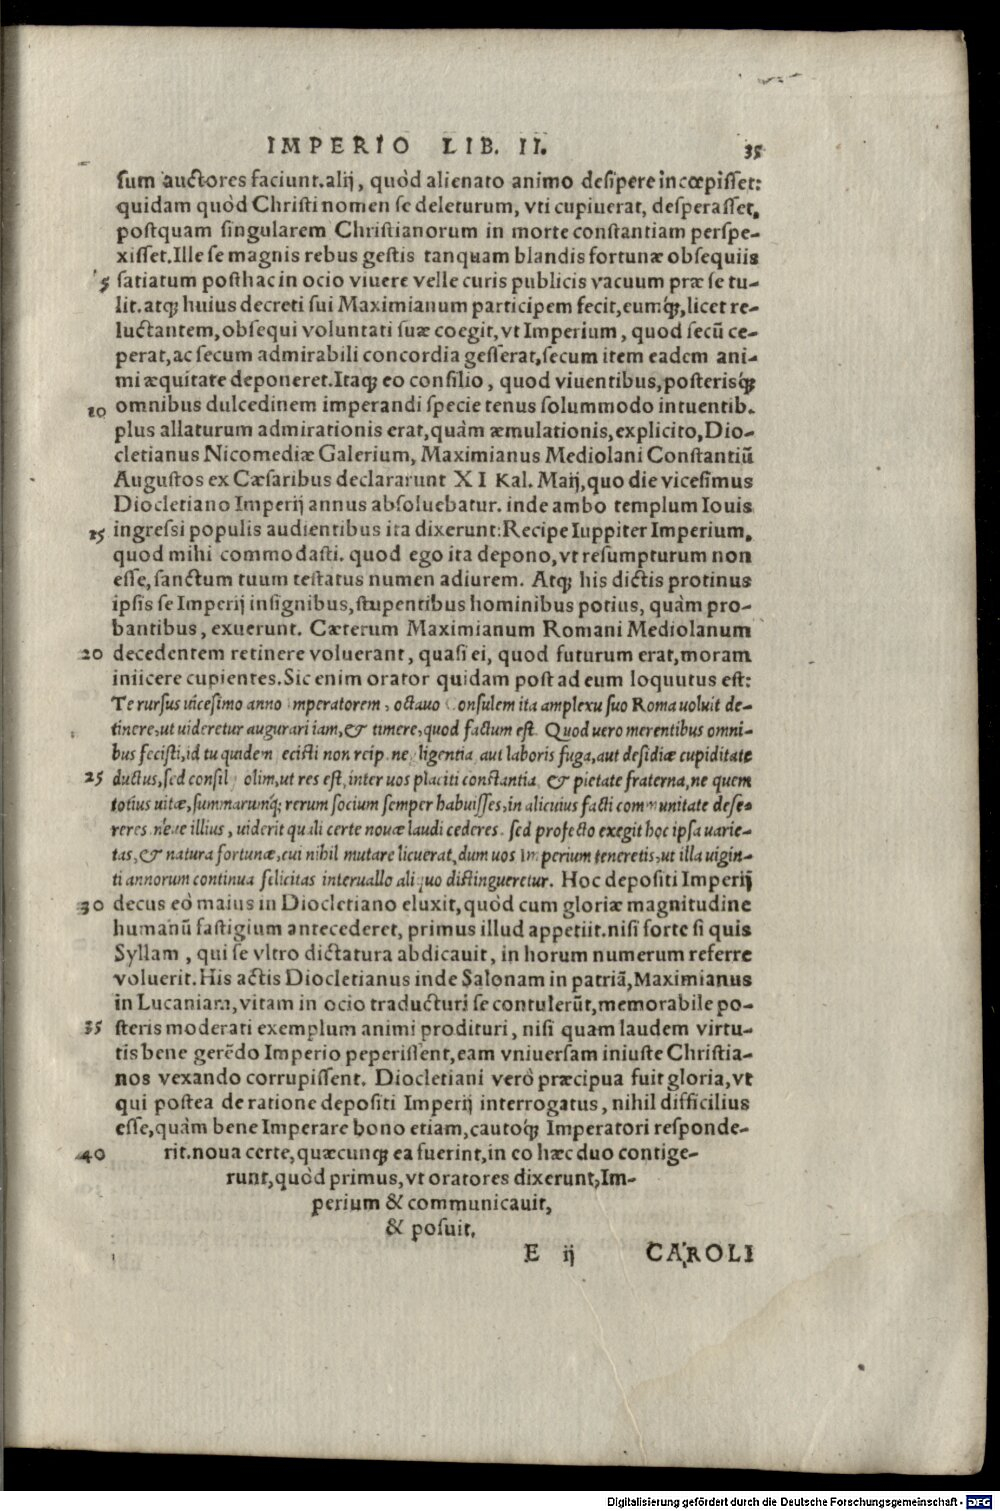 IMPERIO LIB. II. 35
sum auctores faciunt. alij, quòd alienato animo desipere incœpisset:
quidam quòd Christi nomen se deleturum, vti cupiuerat, desperasset,
postquam singularem Christianorum in morte constantiam perspe-
xisset. Ille se magnis rebus gestis tanquam blandis fortunæ obsequiis
5 satiatum posthac in ocio viuere velle curis publicis vacuum præ se tu-
lit. atq; huius decreti sui Maximianum participem fecit, eumq́;, licet re-
luctantem, obsequi voluntati suæ coegit, vt Imperium, quod secū ce-
perat, ac secum admirabili concordia gesserat, secum item eadem ani-
mi æquitate deponeret. Itaq; eo consilio, quod viuentibus, posterisq́;
10 omnibus dulcedinem imperandi specie tenus solummodo intuentib.
plus allaturum admirationis erat, quàm æmulationis, explicito, Dio-
cletianus Nicomediæ Galerium, Maximianus Mediolani Constantiū
Augustos ex Cæsaribus declararunt XI Kal. Maij, quo die vicesimus
Diocletiano Imperij annus absoluebatur. inde ambo templum Iouis
15 ingressi populis audientibus ita dixerunt: Recipe Iuppiter Imperium,
quod mihi commodasti. quod ego ita depono, vt resumpturum non
esse, sanctum tuum testatus numen adiurem. Atq; his dictis protinus
ipsis se Imperij insignibus, stupentibus hominibus potius, quàm pro-
bantibus, exuerunt. Cæterum Maximianum Romani Mediolanum
20 decedentem retinere voluerant, quasi ei, quod futurum erat, moram
iniicere cupientes. Sic enim orator quidam post ad eum loquutus est:
Te rursus uicesimo anno imperatorem, octauo Consulem ita amplexu suo Roma uoluit de-
tinere, ut uideretur augurari iam, & timere, quod factum est. Quod uero merentibus omni-
bus fecisti, id tu quidem fecisti non reip. negligentia aut laboris fuga, aut desidiæ cupiditate
25 ductus, sed consilij olim, ut res est, inter uos placiti constantia & pietate fraterna, ne quem
totius uitæ, summarumq; rerum socium semper habuisses, in alicuius facti communitate dese-
reres, neue illius, uiderit quali certe nouæ laudi cederes. sed profecto exegit hoc ipsa uarie-
tas, & natura fortunæ, cui nihil mutare licuerat, dum uos Imperium teneretis, ut illa uigin-
ti annorum continua felicitas interuallo aliquo distingueretur. Hoc depositi Imperij
30 decus eò maius in Diocletiano eluxit, quòd cum gloriæ magnitudine
humanū fastigium antecederet, primus illud appetiit. nisi forte si quis
Syllam, qui se vltro dictatura abdicauit, in horum numerum referre
voluerit. His actis Diocletianus inde Salonam in patriā, Maximianus
in Lucaniam, vitam in ocio traducturi se contulerūt, memorabile po-
35 steris moderati exemplum animi prodituri, nisi quam laudem virtu-
tis bene gerēdo Imperio peperissent, eam vniuersam iniuste Christia-
nos vexando corrupissent. Diocletiani verò præcipua fuit gloria, vt
qui postea de ratione depositi Imperij interrogatus, nihil difficilius
esse, quàm bene Imperare bono etiam, cautoq́; Imperatori responde-
40 rit. noua certe, quæcunq; ea fuerint, in eo hæc duo contige-
runt, quòd primus, vt oratores dixerunt, Im-
perium & communicauit,
& posuit.
E ij CAROLI
Digitalisierung gefördert durch die Deutsche Forschungsgemeinschaft - DFG